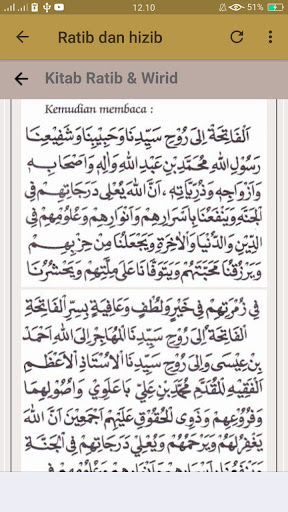 12.10
51%
Ratib dan hizib
Kitab Ratib & Wirid
Kemudian membaca :
اَلْفَاتِحَةُ اِلَى رُوْحِ سَيِّدِنَا وَحَبِيْبِنَا وَشَفِيْعِنَا
رَسُوْلِ اللهِ مُحَمَّدِ بْنِ عَبْدِ اللهِ وَاٰلِهِ وَاَصْحَابِهِ
وَاَزْوَاجِهِ وَذُرِّيَّاتِهِ ، اَنَّ اللهَ يُعْلِى دَرَجَاتِهِمْ فِى
الْجَنَّةِ وَيَنْفَعُنَا بِاَسْرَارِهِمْ وَاَنْوَارِهِمْ وَعُلُوْمِهِمْ فِى
الدِّيْنِ وَالدُّنْيَا وَالْاٰخِرَةِ وَيَجْعَلُنَا مِنْ حِزْبِهِمْ
وَيَرْزُقُنَا مَحَبَّتَهُمْ وَيَتَوَفَّانَا عَلَى مِلَّتِهِمْ وَيَحْشُرُنَا
فِى زُمْرَتِهِمْ فِى خَيْرٍ وَلُطْفٍ وَعَافِيَةٍ بِسِرِّ الْفَاتِحَةِ
اَلْفَاتِحَةُ اِلَى رُوْحِ سَيِّدِنَا الْمُهَاجِرِ اِلَى اللهِ اَحْمَدَ
بْنِ عِيْسَى وَاِلَى رُوْحِ سَيِّدِنَا الْاُسْتَاذِ الْاَعْظَمِ
الْفَقِيْهِ الْمُقَدَّمِ مُحَمَّدِ بْنِ عَلِيّ بَاعَلَوِيْ وَاُصُوْلِهِمَا
وَفُرُوْعِهِمْ وَذَوِى الْحُقُوْقِ عَلَيْهِمْ اَجْمَعِيْنَ اَنَّ اللهَ
يَغْفِرُ لَهُمْ وَيَرْحَمُهُمْ وَيُعْلِى دَرَجَاتِهِمْ فِى الْجَنَّةِ
وَيَنْفَعُنَا بِاَسْرَارِهِمْ وَاَنْوَارِهِمْ وَعُلُوْمِهِمْ فِى